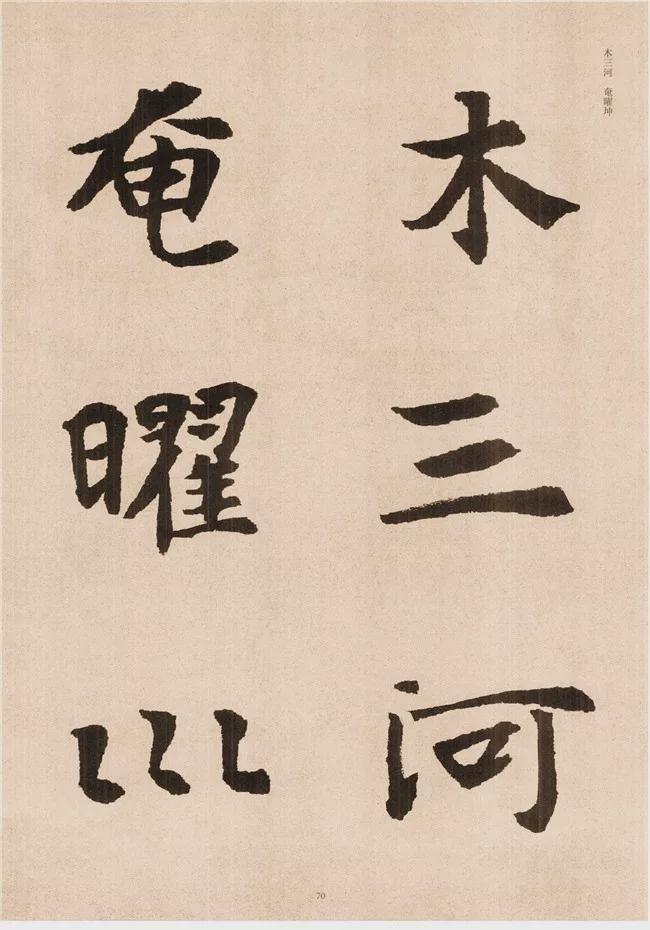 木三河　奄曜坤
木三河
奄曜巛
70